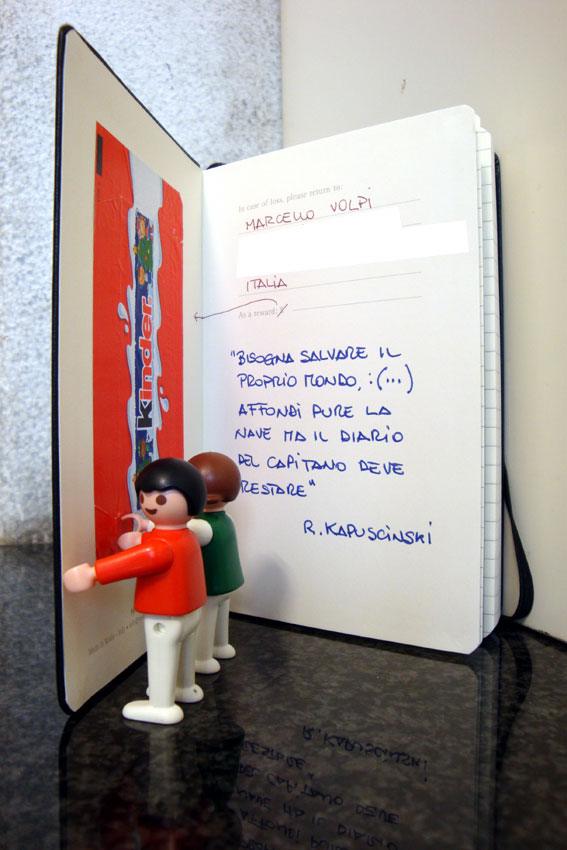 Kinder
In case of loss, please return to:
MARCELLO VOLPI
ITALIA
As a reward: $
"BISOGNA SALVARE IL
PROPRIO MONDO, :(...)
AFFONDI PURE LA
NAVE MA IL DIARIO
DEL CAPITANO DEVE
RESTARE"
R. KAPUSCINSKI